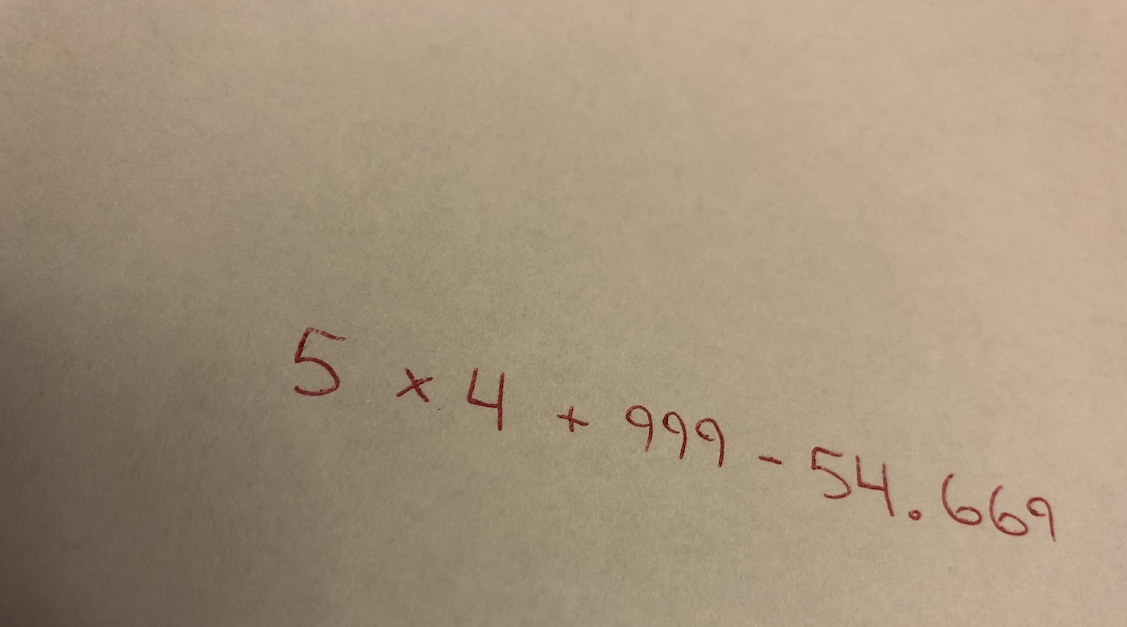 5 × 4 + 999 - 54.669